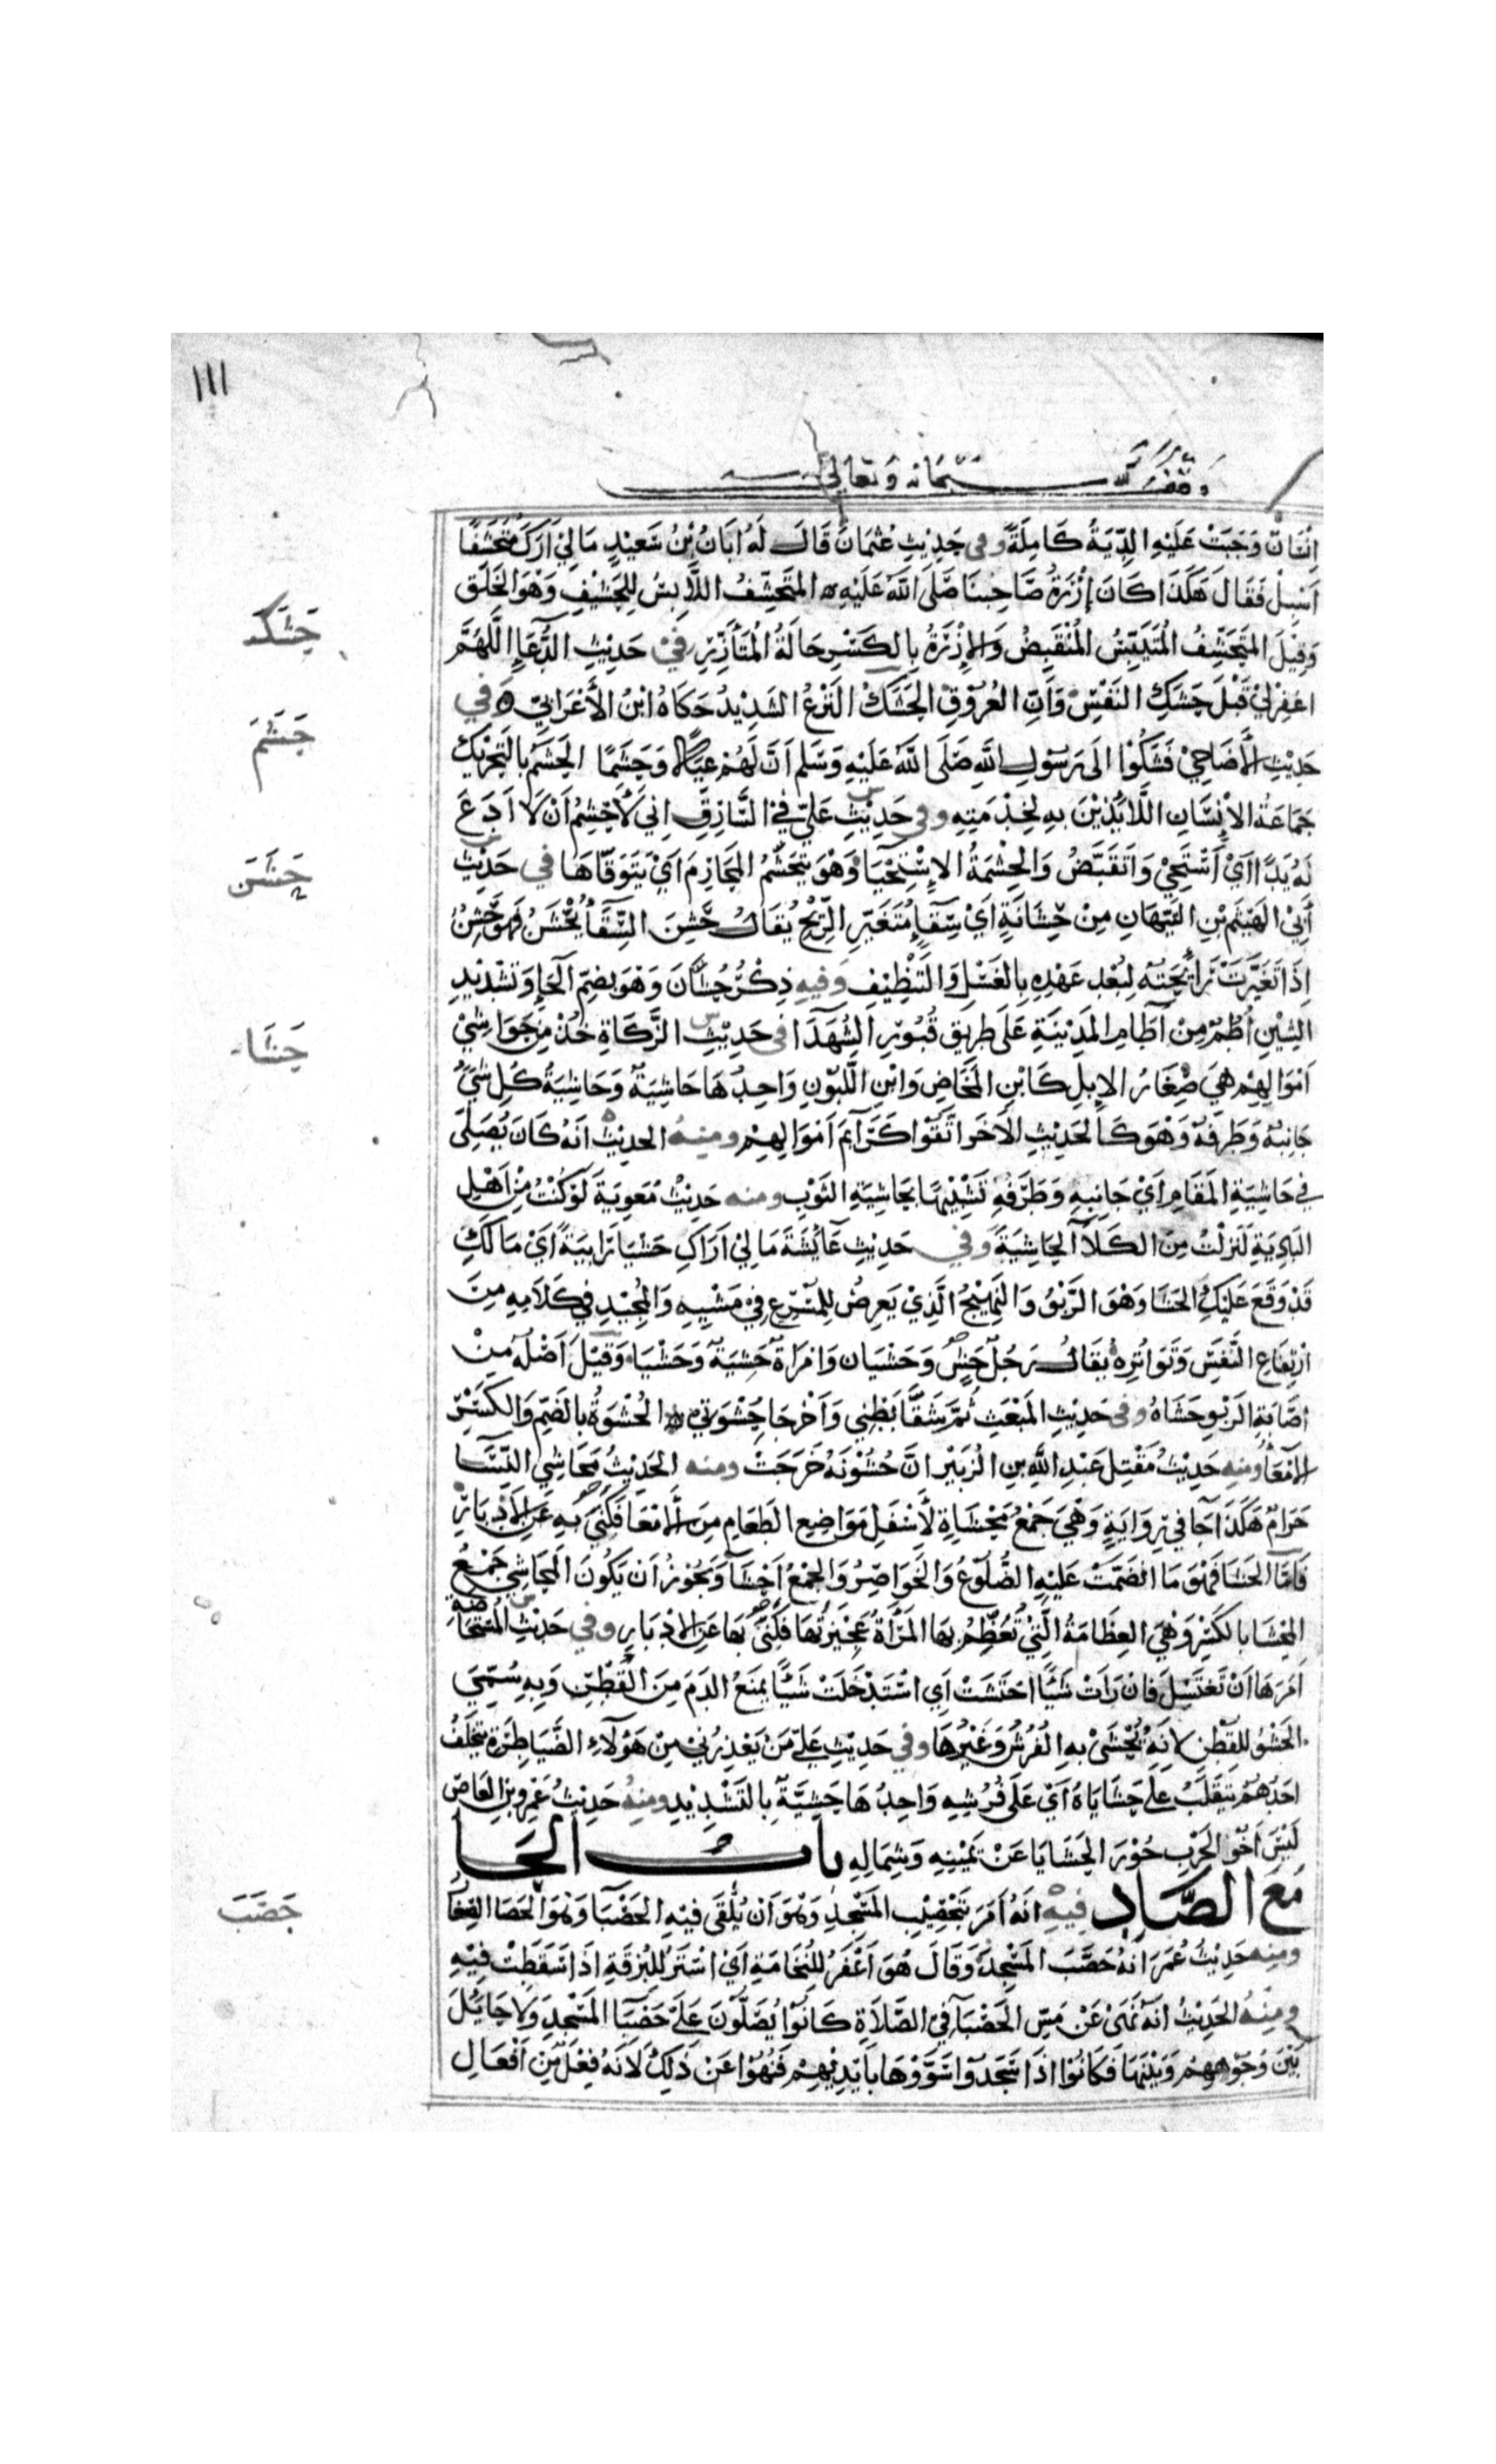 ١١١
وقف لله سبحانه وتعالى
إنسان وَجَبَتْ عَلَيْهِ الدِّيَةُ كَامِلَةً وفي حَدِيثِ عُثمَانَ قَالَ لَهُ أبَانُ بْنُ سَعِيْدٍ مَالِيْ أَرَكَ مُتَحَشِّفًا
أَسْبِلْ فَقَالَ هَكَذَا كَانَ إِزْرَةُ صَاحِبِنَا صَلَّى اللَّهُ عَلَيْهِ المُتَحَشِّفُ اللَّابِسُ لِلحَشِيْفِ وَهْوَ الخَلَق
وَقِيْلَ المُتَحَشِّفُ المُتَيَبِّسُ المُنْقَبِضُ وَالإِزْرَةُ بِالكَسْرِ حَالَةُ المُتَأَزِّرِ فيْ حَدِيْثِ الدُّعَاءِ اللَّهُمَّ
حَشَكَ
اغفِرْ لِيْ قَبْلَ حَشْكِ النَفْسِ وَأَنِّ العُرُوقِ الحَشْكُ النَزْعُ الشَدِيْدُ حَكَاهُ ابْنُ الأَعْرَابِيّ وَفي
حَشَمَ
حَدِيْثِ الأَضَاحِيْ فَشَكَوْا الَى رَسُولِ اللَّهِ صَلَّى اللَّهُ عَلَيْهِ وَسَلَّم أَنَّ لَهُمْ عِيَالًا وَحَشَمًا الحَشَمُ بِالتَحْرِيْكِ
جَمَاعَةُ الإِنْسَانِ اللَّائِذِيْنَ بِهِ لِخِدْمَتِهِ وفى حَدِيْثِ عَلِيّ فِيْ السَّارِقِ إِنِي لأَحْتَشِمُ أَنْ لَا أَدَعَ
لَهُ يَدًا أَيْ أَسْتَحْيِ وَاَنْقَبِضُ وَالحِشْمَةُ الإِسْتِحْيَا وَهْوَ يَتَحَشَّمُ المَحَارِمَ أَيْ يَتَوَقَّاهَا في حَدِيْثِ
حَشَنَ
أَبِيْ الهَيْثَمِ بْنِ التَيِّهَانِ مِنْ حِشَانَةٍ أَيْ سِقَاءٍ مُتَغَيّرِ الرِّيْحِ يُقَالُ حَشِنَ السِّقَاءُ يَحْشَنُ فَهُوَ حَشِنٌ
إِذَا تَغَيَّرَتْ رَائِحَتُهُ لِبُعْدِ عَهْدِهِ بِالغَسْلِ وَالتَنْظِيْفِ وَفيهِ ذِكْرُ حُشَّانَ وَهْوَ بِضَمِّ الحَاءِ وَتَشْدِيْدِ
حَشَا
الشِيْنِ أُطُمٌ مِنْ آطَامِ المَدِيْنَةِ عَلَى طَرِيْقِ قُبُوْرِ الشُهَدَا فى حَدِيْثِ الزَّكَاةِ خُذْ مِنْ حَوَاشِيْ
أَمْوَالِهِمْ هِيَ صِغَارُ الإِبِلِ كَابْنِ المَخَاضِ وَابْنِ اللَّبُوْنِ وَاحِدُهَا حَاشِيَةٌ وَحَاشِيَةُ كُلِ شَيْءٍ
جَانِبُهُ وَطَرَفُهُ وَهْوَ كَالحَدِيْثِ الآخَرِ اتَّقُوْا كَرَائِمَ أَمْوَالِهِمْ ومنهُ الحديْثُ أَنَهُ كَانَ يُصَلِّى
فِيْ حَاشِيَةِ المَقَامِ أَيْ جَانِبِهِ وَطَرَفِهِ تَشْبِيْهًا بِحَاشِيَةِ الثَوْبِ ومنه حَدِيْثُ مُعَوِيَةَ لَوْ كُنْتُ مِنْ أَهْلِ
البَادِيَةِ لَنَزَلْتُ مِنَ الكَلَأِ الحَاشِيَةَ وَفي حَدِيْثِ عَائِشَةَ مَالِيْ أَرَاكِ حَشْيَا رَابِيَةً أَيْ مَالَكِ
قَدْ وَقَعَ عَلَيْكِ الحَشَا وَهْوَ الرَّبْوُ وَالنَهِيْجُ الَّذِيْ يَعِرِضُ لِلْمُسْرِعِ فِيْ مَشْيِهِ وَالمُجِدِّ في كَلَامِهِ مِنَ
ارْتِفَاعِ النَّفَسِ وَتَوَاتُرِهِ يُقَالُ رَجُلٌ حَشٍ وَحَشْيَان وَامْرَاةٌ حَشِيَةٌ وَحَشْيَا وَقِيْلَ أَصْلُهُ مِنْ
إِصَابَةِ الرَبْوِ حَشَاهُ وفى حَدِيْثِ المَبْعَثِ ثُمَّ شَقَّا بَطْنِي وَأَخْرَجَا حُشْوَتِي الحُشْوَةُ بِالضَمِّ وَالكَسْرِ
الأَمْعَاءُ ومنه حَدِيْثُ مَقْتَلِ عَبْدِ اللَّهِ بنِ الزُبَيْرِ أَنَّ حُشْوَتَهُ خَرَجَتْ ومنه الحَدِيْثُ مَحَاشِي النِّسَا
حَرَامٌ هَكَذَا جَا في رِوَايَةٍ وَهْيَ جَمْعُ مِحْشَاةٍ لِأَسْفَلِ مَوَاضِعِ الطَعَامِ مِنَ الأَمْعَا فَكَنَى بِهِ عَنِ الأَدْبَارِ
فَأَمَّا الحَشَا فَهْوَ مَا انْضَمَّتْ عَلَيْهِ الضُّلُوْعُ وَالخَوَاصِرُ وَالجَمْعُ أَحْشَا وَيَجُوْزُ أَنْ يَكُونَ المَحَاشِي جَمْعُ
المِحْشَا بالكَسْرِ وَهْيَ العِظَامَةُ الَّتِيْ تُعَظِّمُ بِهَا المَرْأَةُ عَجِيْزَتُهَا فَكَنَى بِهَا عَنِ الأَدْبَارِ وفي حَدِيْثِ المُسْتَحَاضَةِ
أَمَرَهَا أَنْ تَغْتَسِلَ فَإِنْ رَأَتْ شَيْئًا احْتَشَتْ أَي اسْتَدْخَلَتْ شَيْئًا يَمْنَعُ الدَمَ مِنَ القُطْنِ وَبِهِ سُمِّيَ
الحَشْوُ لِلقُطْنِ لِأَنَهُ يُحْشَى بِهِ الفُرُشُ وَغَيْرُهَا وفي حَدِيْثِ عَلِيّ مَنْ يَعْذِرُنِيْ مِنْ هَؤُلَاءِ الضَّيَاطِرَةِ يَتَخَلَّفُ
أَحَدُهُمْ يَتَقَلَّبُ عَلَى حَشَايَاهُ أَيْ عَلَى فُرُشِهِ وَاحِدُهَا حَشِيَّةٌ بِالتَشْدِيْدِ ومنهُ حَدِيْثُ عَمْرِو بنِ العَاصِ
لَيْسَ أَخُو الحَرْبِ حُوْرَ الحَشَايَا عَنْ يَمِيْنِهِ وَشِمَالِهِ بَابُ الحَا
مَعَ الصَّادِ فيهِ أَنَهُ أَمَرَ بِتَحْصِيْبِ المَسْجِدِ وَهْوَ أَنْ يُلْقَى فيْهِ الحَصْبَا وَهْوَ الحَصَا الصِغَارُ
حَصَبَ
ومنه حَدِيْثُ عُمَرَ أَنَهُ حَصَّبَ المَسْجِدَ وَقَالَ هُوَ أَغْفَرُ للنُّخَامَةِ أَيْ أَسْتَرُ للبُزَقَةِ إِذَا سَقَطَتْ فِيْهِ
ومنهُ الحَدِيْثُ أَنَهُ نَهَى عَنْ مَسِّ الحَصْبَا فِيْ الصَّلَاةِ كَانُوْا يُصَلُّوْنَ عَلَى حَصْبَا المَسْجِدِ وَلَا حَائِلَ
بَيْنَ وُجُوْهِهِمْ وَبَيْنَهَا فَكَانُوْا إِذَا سَجَدُوا سَوَّوْهَا بِأَيْدِيْهِمْ فَنُهُوْا عَنْ ذَلِكَ لِأَنَهُ فِعْلٌ مِّن أَفْعَالِ